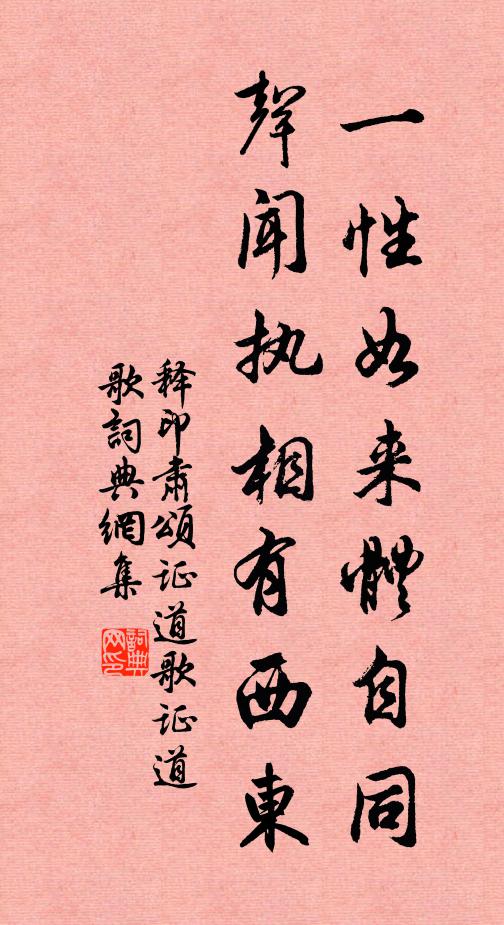 一性如来體自同
聲闻执相有西東
释印肃頌证道歌证道
歌詞典網集
詞典网印